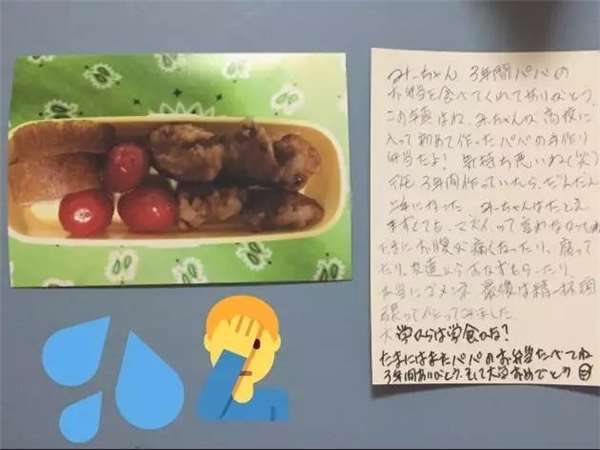 みーちゃん 3年間パパの
お弁当を食べてくれてありがとう
この写真はね、みーちゃんが高校に
入って初めて作ったパパの手作り
弁当だよ! 気持ち悪いね(笑)
3年間作っていたら、だんだん
になった みーちゃんはたとえ
まずくても、マズイって言わなかったね
たまにお腹が痛くなったり、腐って
たり、友達からおかずもらったり、
本当にゴメンネ 最後は精一杯頑
張って作ってみました
大学からは学食かな?
たまにはまたパパのお弁当たべてね
3年間ありがとう、そして大学おめでとう